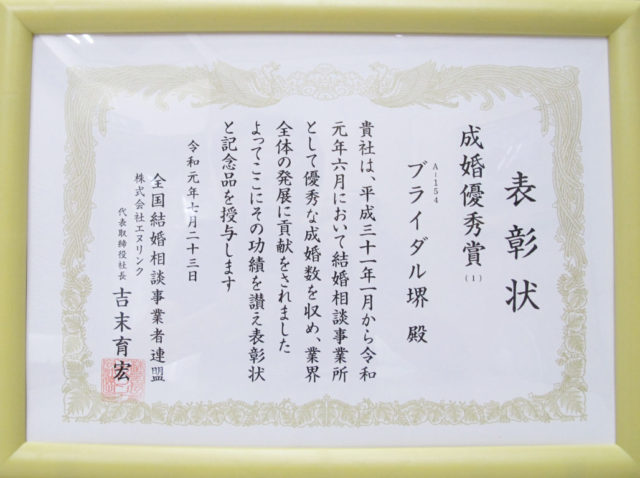 表彰状
成婚優秀賞(1)
A-154
ブライダル堺 殿
貴社は、平成三十一年一月から令和
元年六月において結婚相談事業所
として優秀な成婚数を収め、業界
全体の発展に貢献をされました
よってここにその功績を讃え表彰状
と記念品を授与します
令和元年七月二十三日
全国結婚相談事業者連盟
株式会社エヌリンク
代表取締役社長 吉末育宏